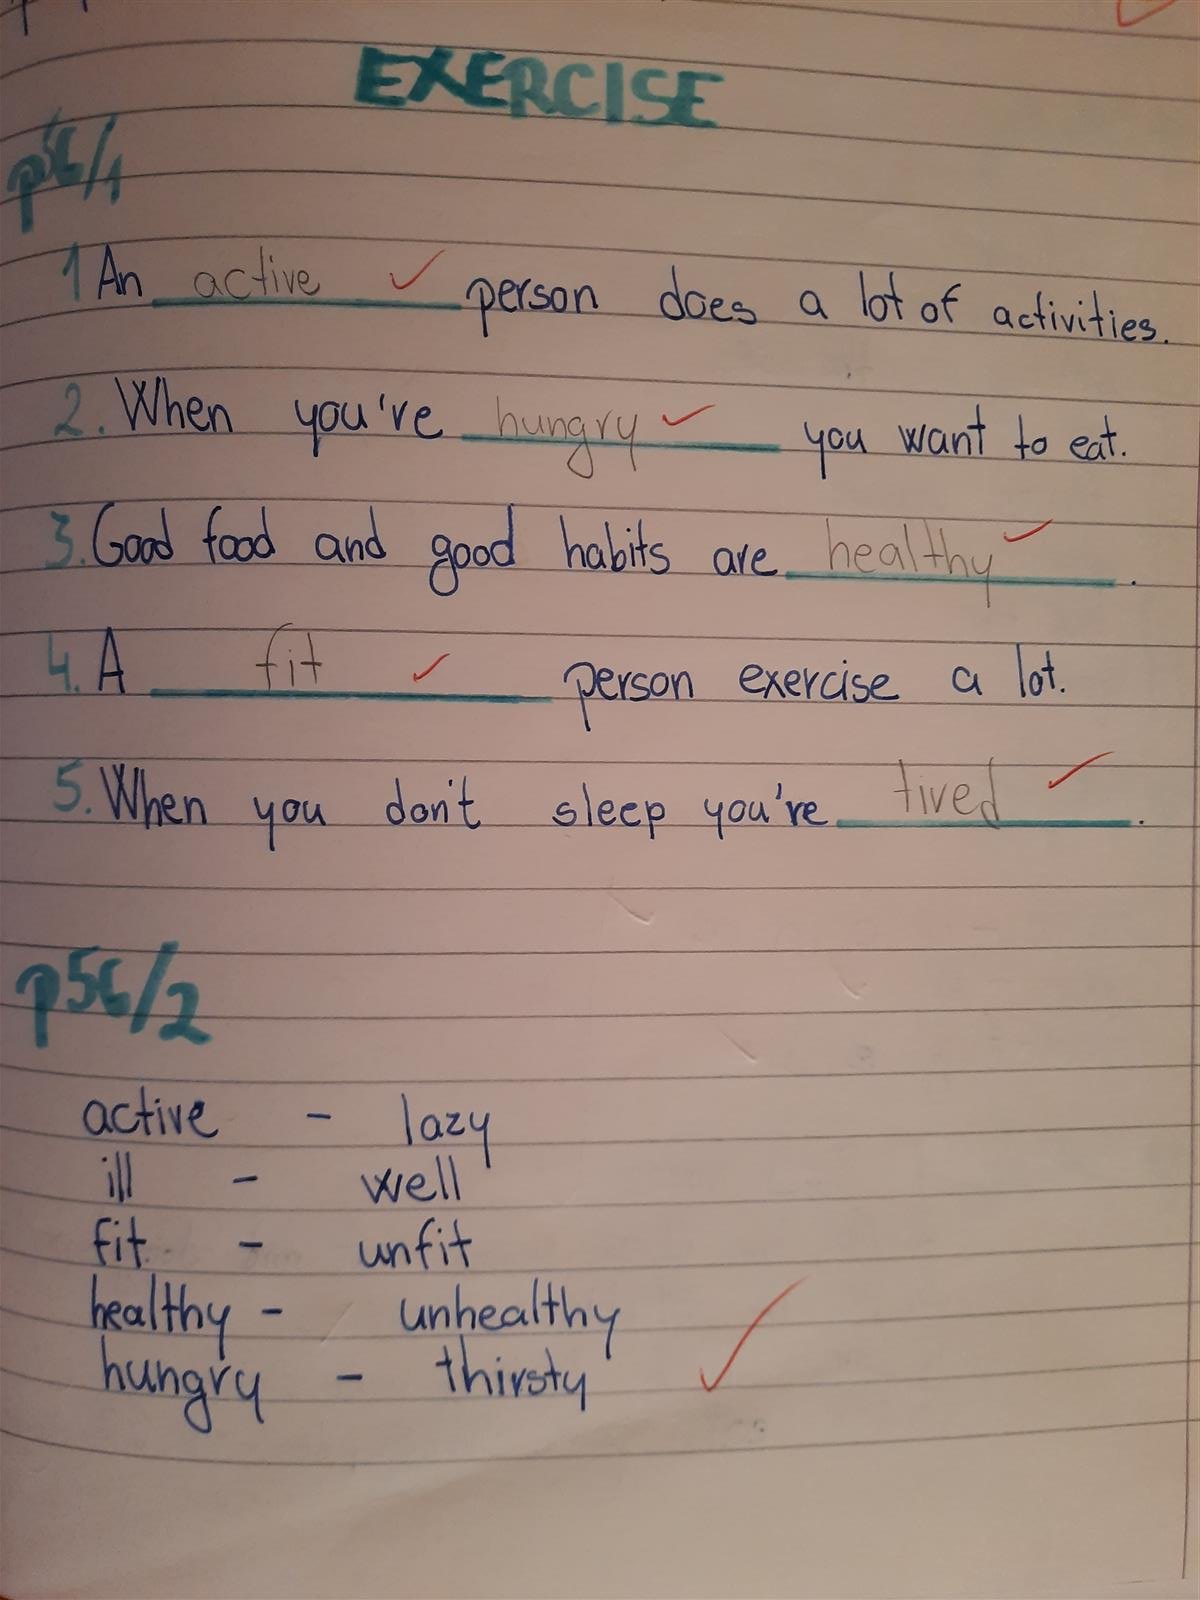 EXERCISE
p56/1
1 An active person does a lot of activities.
2. When you're hungry you want to eat.
3. Good food and good habits are healthy.
4. A fit person exercise a lot.
5. When you don't sleep you're tired.
p56/2
active - lazy
ill - well
fit - unfit
healthy - unhealthy
hungry - thirsty